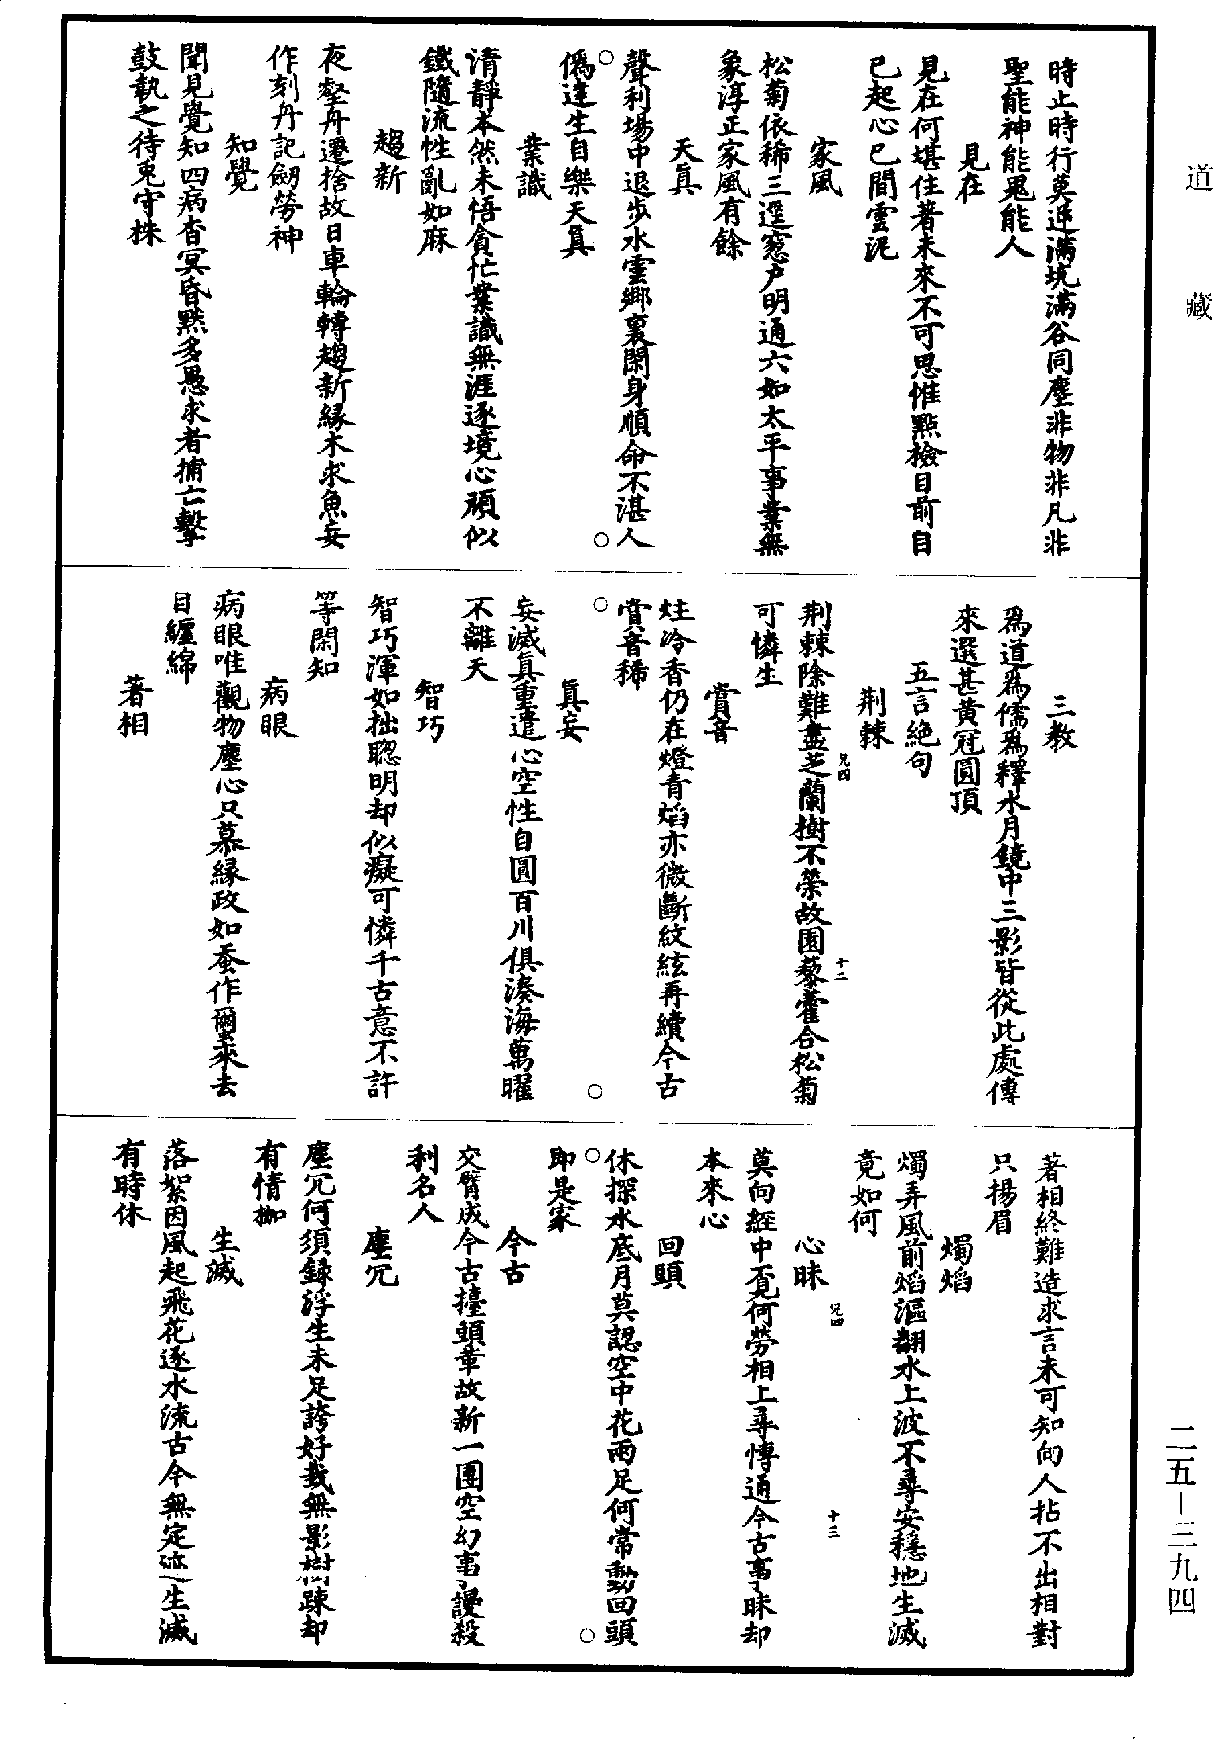 道藏
時止時行莫逆滿坑滿谷同塵非物非凡非
聖能神能鬼能人
見在
見在何堪住著未來不可思惟點檢目前自
已起心已間雲泥
家風
松菊依稀三逕窓户明通六如太平事業無
象淳正家風有餘
天真
聲利場中退步水雲鄉裏閑身順命不湛人
僞達生自樂天真
業識
清靜本然未悟貪忙業識無涯逐境心頑似
鐵隨流性亂如麻
趨新
夜壑舟遷捨故日車輪轉趨新緣木求魚妄
作刻舟記劒勞神
知覺
聞見覺知四病杳冥昏黙多愚求者捕亡擊
鼓執之待兎守株
三教
爲道爲儒爲釋水月鏡中三影皆從此處傳
來選甚黃冠圓頂
五言絕句
荆棘
荆棘除難盡芝蘭樹不榮故園藜藿合松菊
可憐生
兄四
十二
賞音
炷冷香仍在燈青焰亦微斷紋絃再續今古
賞音稀
真妄
妄滅真重遣心空性自圓百川俱湊海萬曜
不離天
智巧
智巧渾如拙聰明却似癡可憐千古意不許
等閑知
病眼
病眼唯觀物塵心只慕緣政如蚕作璽來去
自纏綿
著相
著相終難造求言未可知向人拈不出相對
只揚眉
燭焰
燭弄風前焰漚翻水上波不尋安穩地生滅
竟如何
心昧
莫向經中覓何勞相上尋博通今古事昧却
本來心
兄四
十三
回頭
休探水底月莫認空中花兩足何常動回頭
即是家
今古
交臂成今古擡頭辜故新一團空幻事謾殺
利名人
塵冗
塵冗何須錄浮生未足誇好栽無影樹踈却
有情枷
生滅
落絮因風起飛花逐水流古今無定迹生滅
有時休
二五—三九四